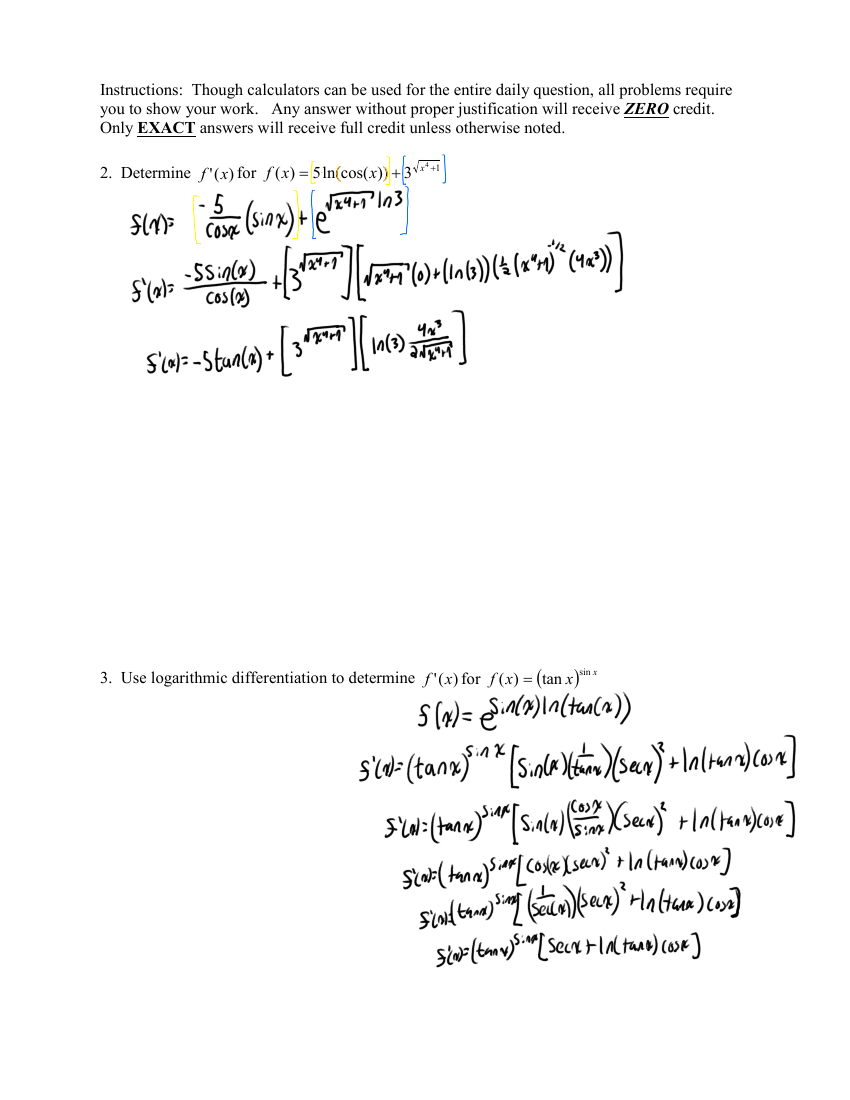 Instructions: Though calculators can be used for the entire daily question, all problems require
you to show your work. Any answer without proper justification will receive ZERO credit.
Only EXACT answers will receive full credit unless otherwise noted.
2. Determine f'(x) for f(x) = [5 ln(cos(x))] + [3^{√(x^4+1)}]
f(x) = [-5/cosx (sinx)] + [e^{√(x^4+1) ln3}]
f'(x) = -5sin(x)/cos(x) + [3^{√(x^4+1)}][√(x^4+1) (0) + (ln(3))(1/2 (x^4+1)^{-1/2} (4x^3))]
f'(x) = -5tan(x) + [3^{√(x^4+1)}][ln(3) 4x^3/2√(x^4+1)]
3. Use logarithmic differentiation to determine f'(x) for f(x) = (tan x)^{sin x}
f(x) = e^{sin(x)ln(tan(x))}
f'(x) = (tanx)^{sinx} [sin(x)(1/tanx)(secx)^2 + ln(tanx)cosx]
f'(x) = (tanx)^{sinx} [sin(x)(cosx/sinx)(secx)^2 + ln(tanx)cosx]
f'(x) = (tanx)^{sinx} [cos(x)(secx)^2 + ln(tanx)cosx]
f'(x) = (tanx)^{sinx} [(1/sec(x))(secx)^2 + ln(tanx)cosx]
f'(x) = (tanx)^{sinx} [secx + ln(tanx)cosx]